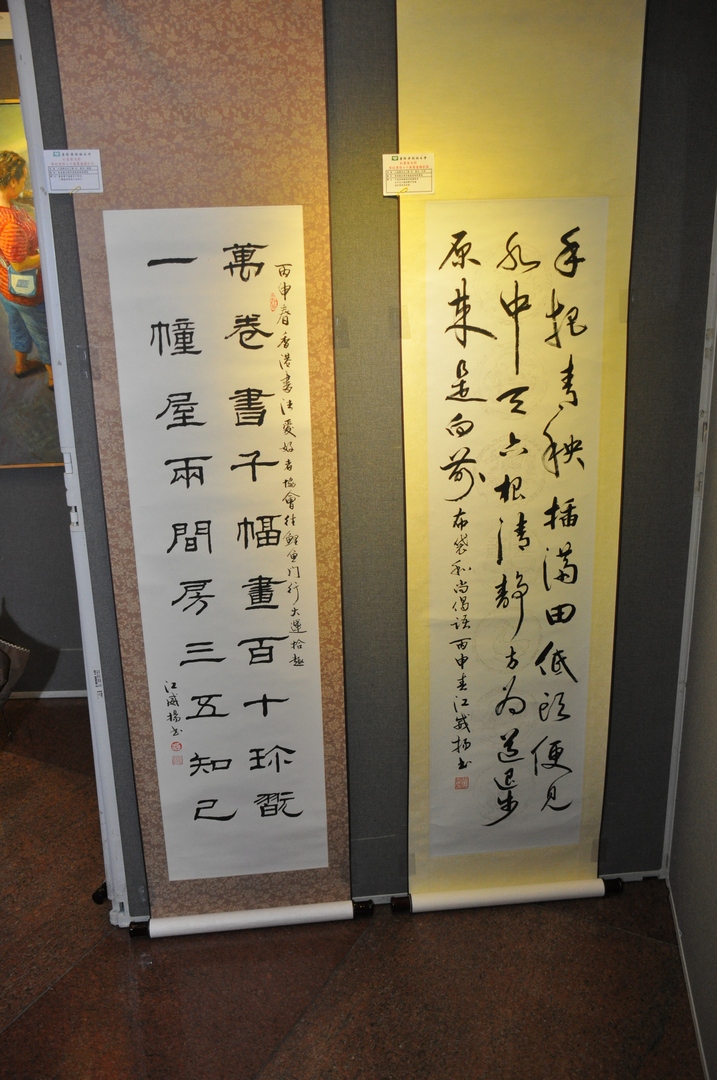 手把青秧插滿田低頭便見
水中天六根清静方为道退步
原来是向前
布袋和尚偈語丙申春江威揚书
丙申春香港書法愛好者協會往鯉魚门行大運拾趣
萬卷書千幅畫百十珎翫
一幢屋兩間房三五知己
江威揚书